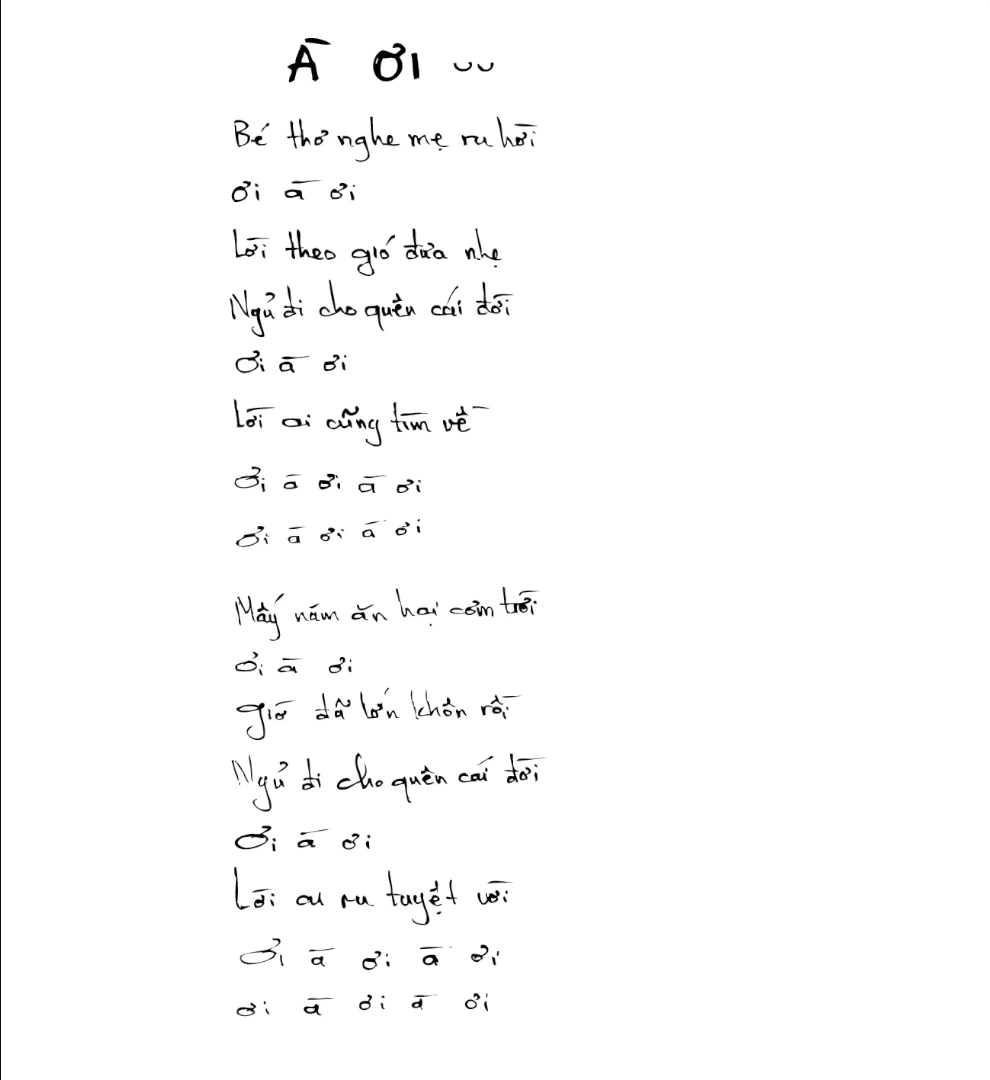 À ƠI ~~
Bé thơ nghe mẹ ru hời
ơi à ơi
Lời theo gió đưa nhẹ
Ngủ đi cho quên cái đời
Ơi à ơi
Lời ai cũng tìm về
Ơi à ơi à ơi
Ơi à ơi à ơi
Mấy năm ăn hại cơm trời
Ơi à ơi
giờ đã lớn khôn rồi
Ngủ đi cho quên cái đời
Ơi à ơi
Lời ai ru tuyệt vời
Ơi à ơi à ơi
ơi à ơi à ơi